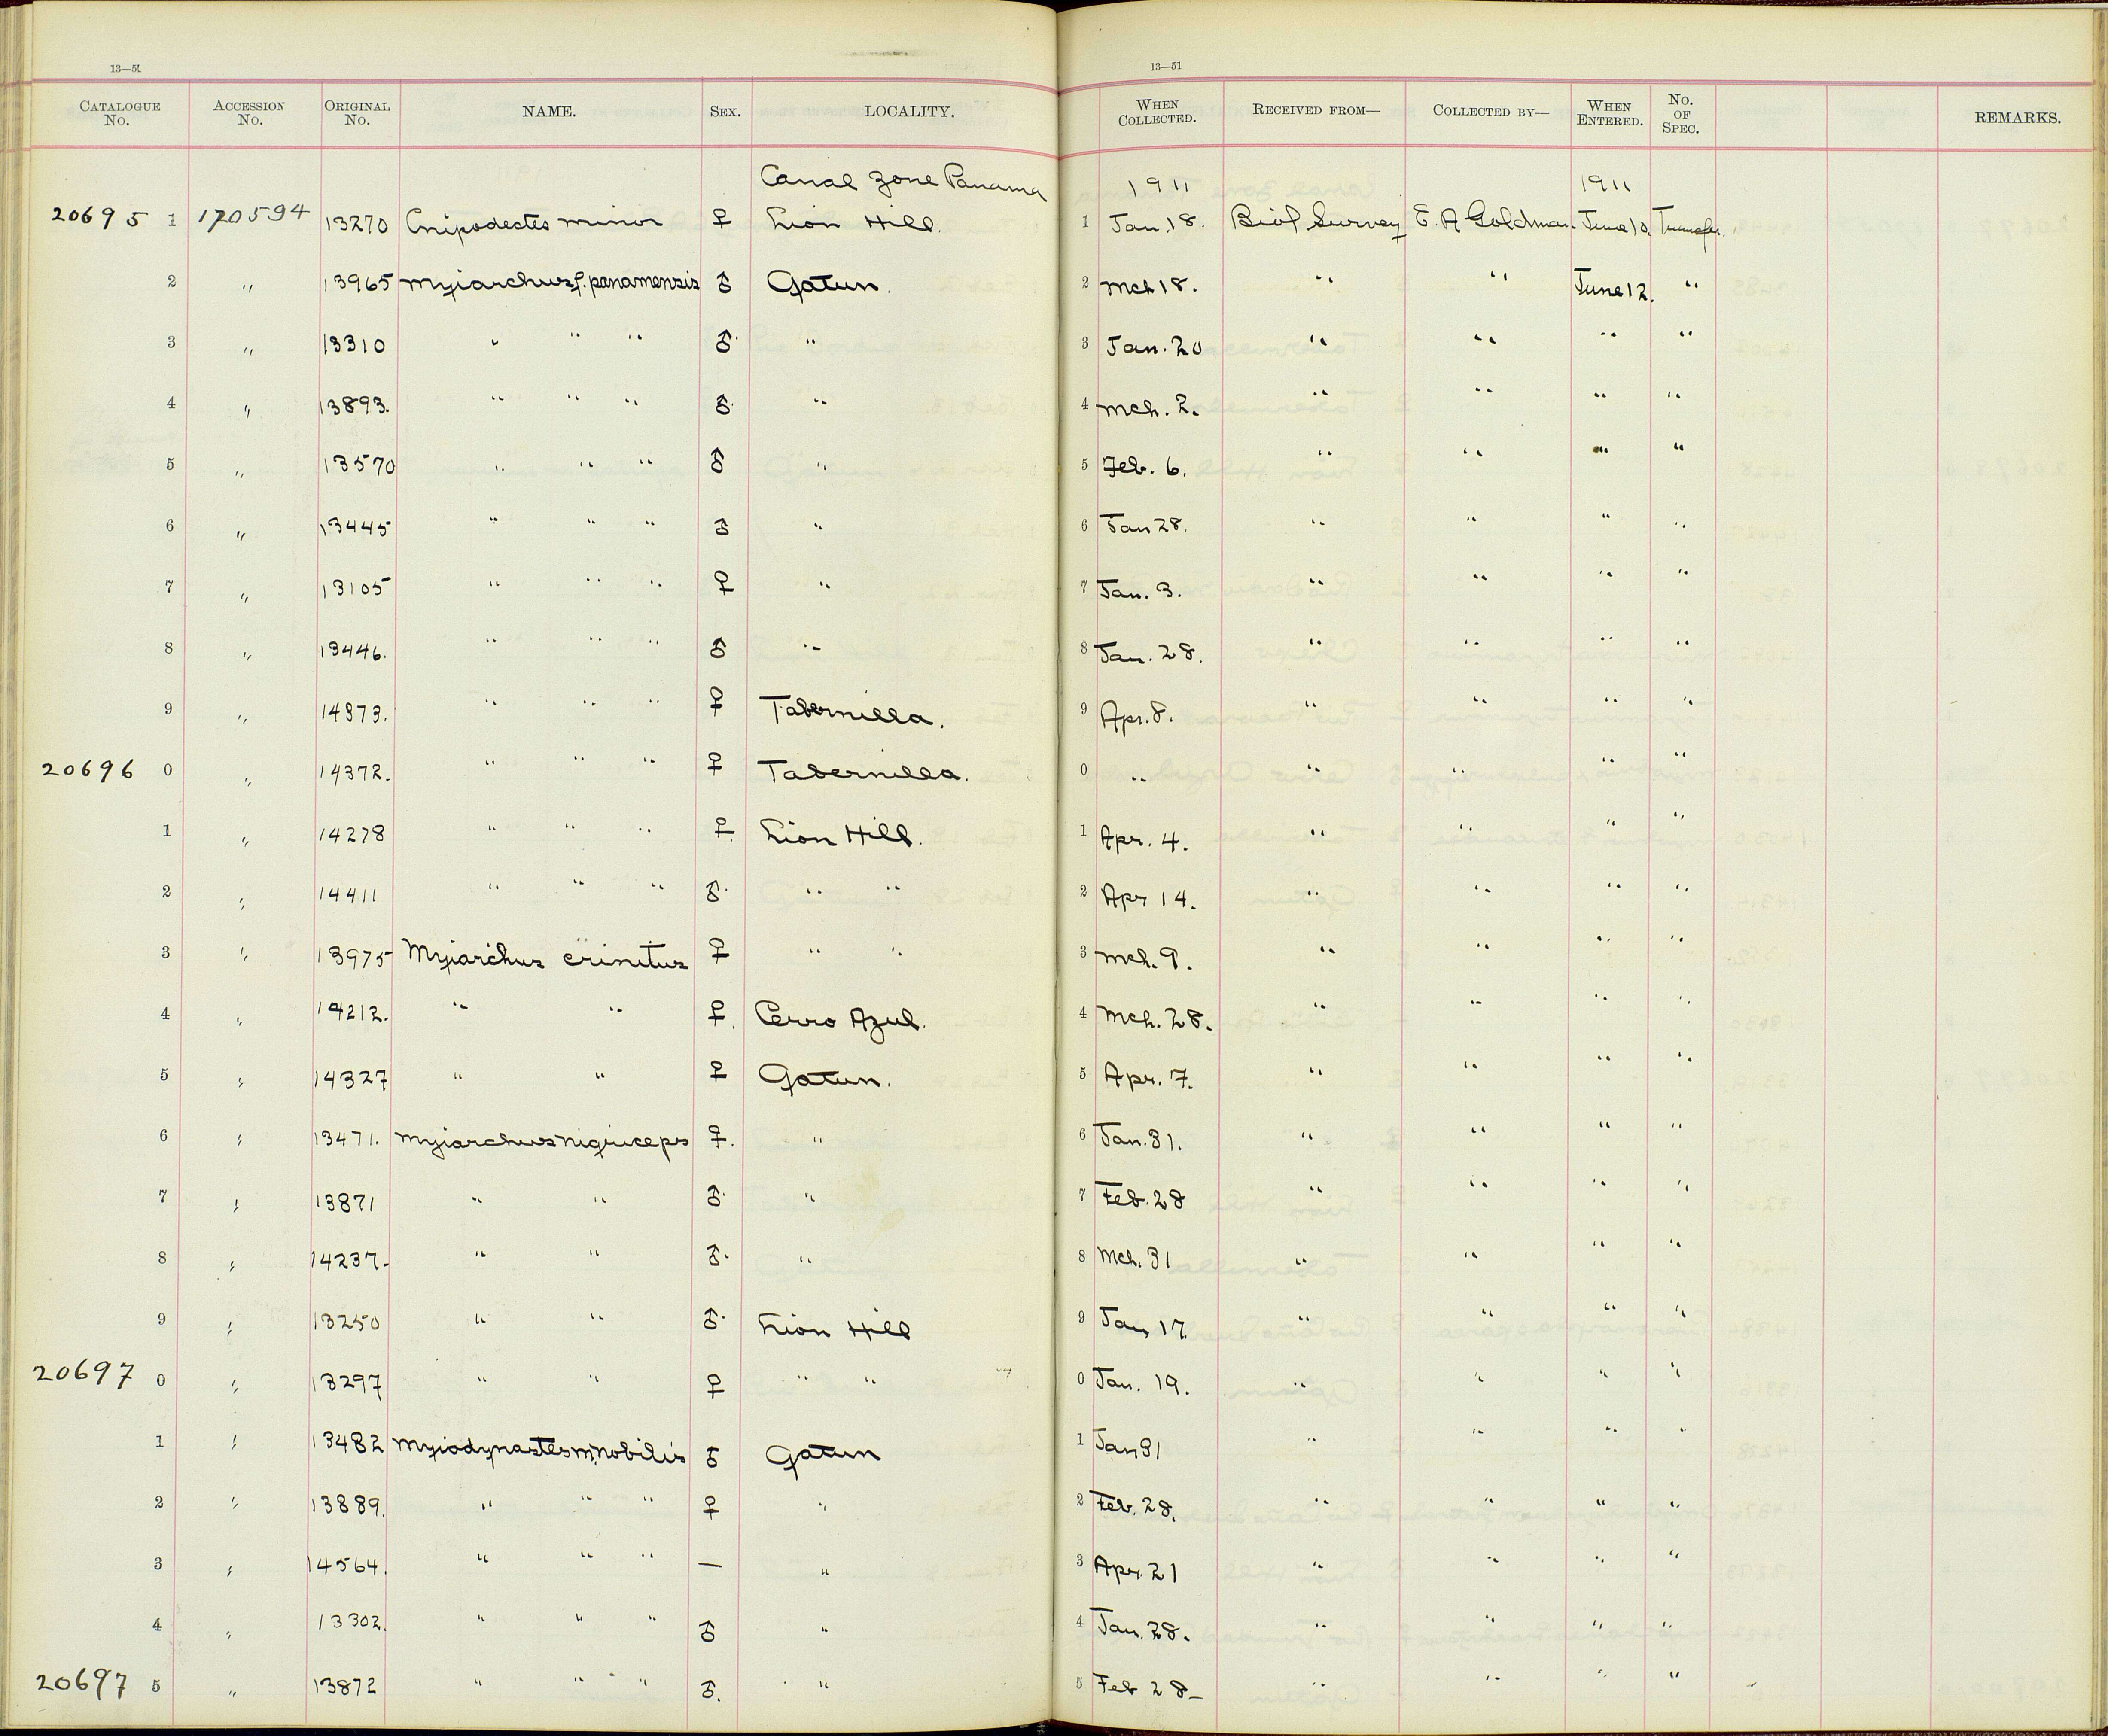 13—51 13—51
CATALOGUE No. ACCESSION No. ORIGINAL No. NAME. SEX. LOCALITY. WHEN COLLECTED. RECEIVED FROM— COLLECTED BY— WHEN ENTERED. No. OF SPEC. REMARKS.
Canal Zone Panama 1911 1911
20695 1 170594 13270 Cnipodectes minor ♀ Lion Hill. 1 Jan. 18. Biol Survey E. A Goldman. June 10. Transfer.
2 " 13965 Myiarchus f. panamensis ♂ Gatun. 2 Mch 18. " " June 12. "
3 " 13310 " " " ♂. " 3 Jan. 20 " " " "
4 " 13893. " " " ♂. " 4 Mch. 2. " " " "
5 " 13570 " " " ♂ " 5 Feb. 6. " " " "
6 " 13445 " " " ♂ " 6 Jan 28. " " " "
7 " 13105 " " " ♀ " 7 Jan. 3. " " " "
8 " 13446. " " " ♂ " 8 Jan. 28. " " " "
9 " 14373. " " " ♀ Tabernilla. 9 Apr. 8. " " " "
20696 0 " 14372. " " " ♀ Tabernilla. 0 " " " " "
1 " 14278 " " " ♀. Lion Hill. 1 Apr. 4. " " " "
2 " 14411 " " " ♂. " " 2 Apr 14. " " " "
3 " 13975 Myiarchus crinitus ♀ " " 3 Mch. 9. " " " "
4 " 14212. " " ♀. Cerro Azul. 4 Mch. 28. " " " "
5 " 14327 " " ♀ Gatun. 5 Apr. 7. " " " "
6 " 13471. Myiarchus nigriceps ♀. " 6 Jan. 31. " " " "
7 " 13871 " " ♂. " 7 Feb. 28 " " " "
8 " 14237. " " ♂. " 8 Mch. 31 " " " "
9 " 13250 " " ♂. Lion Hill 9 Jan 17. " " " "
20697 0 " 13297 " " ♀ " " 0 Jan. 19. " " " "
1 " 13482 Myiodynastes m. nobilis ♂ Gatun 1 Jan 31 " " " "
2 " 13889. " " " ♀ " 2 Feb. 28. " " " "
3 " 14564. " " " — " 3 Apr. 21 " " " "
4 " 13302. " " " ♂ " 4 Jan. 28. " " " "
20697 5 " 13872 " " " ♂. " 5 Feb 28— " " " "